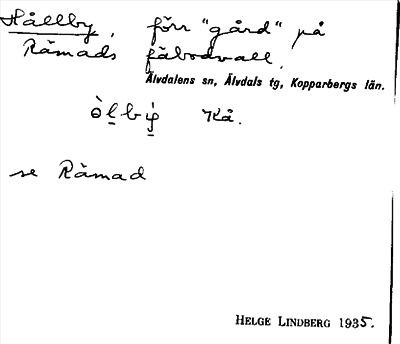 Hållby, förr "gård" på
Råmads fäbodvall.
Älvdalens sn, Älvdals tg, Kopparbergs län.
Kå.
se Råmad
HELGE LINDBERG 1935.